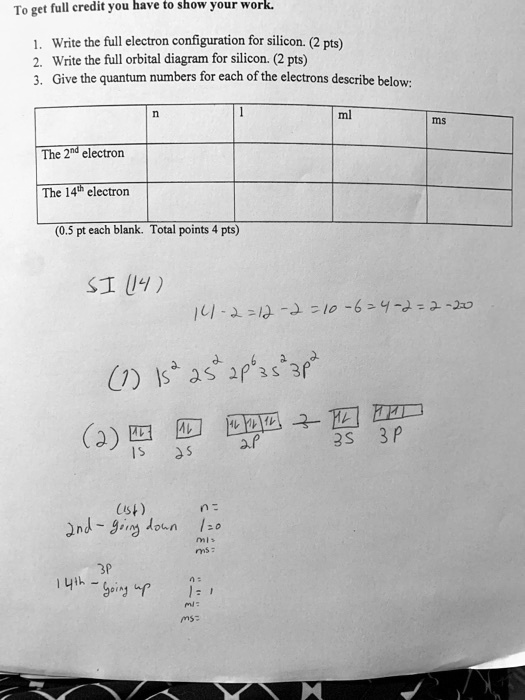 To get full credit you have to show your work.
1. Write the full electron configuration for silicon. (2 pts)
2. Write the full orbital diagram for silicon. (2 pts)
3. Give the quantum numbers for each of the electrons describe below:
n l ml ms
The 2nd electron
The 14th electron
(0.5 pt each blank. Total points 4 pts)
SI (14)
14-2=12-2=10-6=4-2=2-2=0
(1) 1s² 2s² 2p⁶ 3s² 3p²
(2) 1S 2S 2P 3S 3P
(1st) n=
2nd - going down l=0
ml=
ms=
3P
14th - going up n=
l=1
ml=
ms=